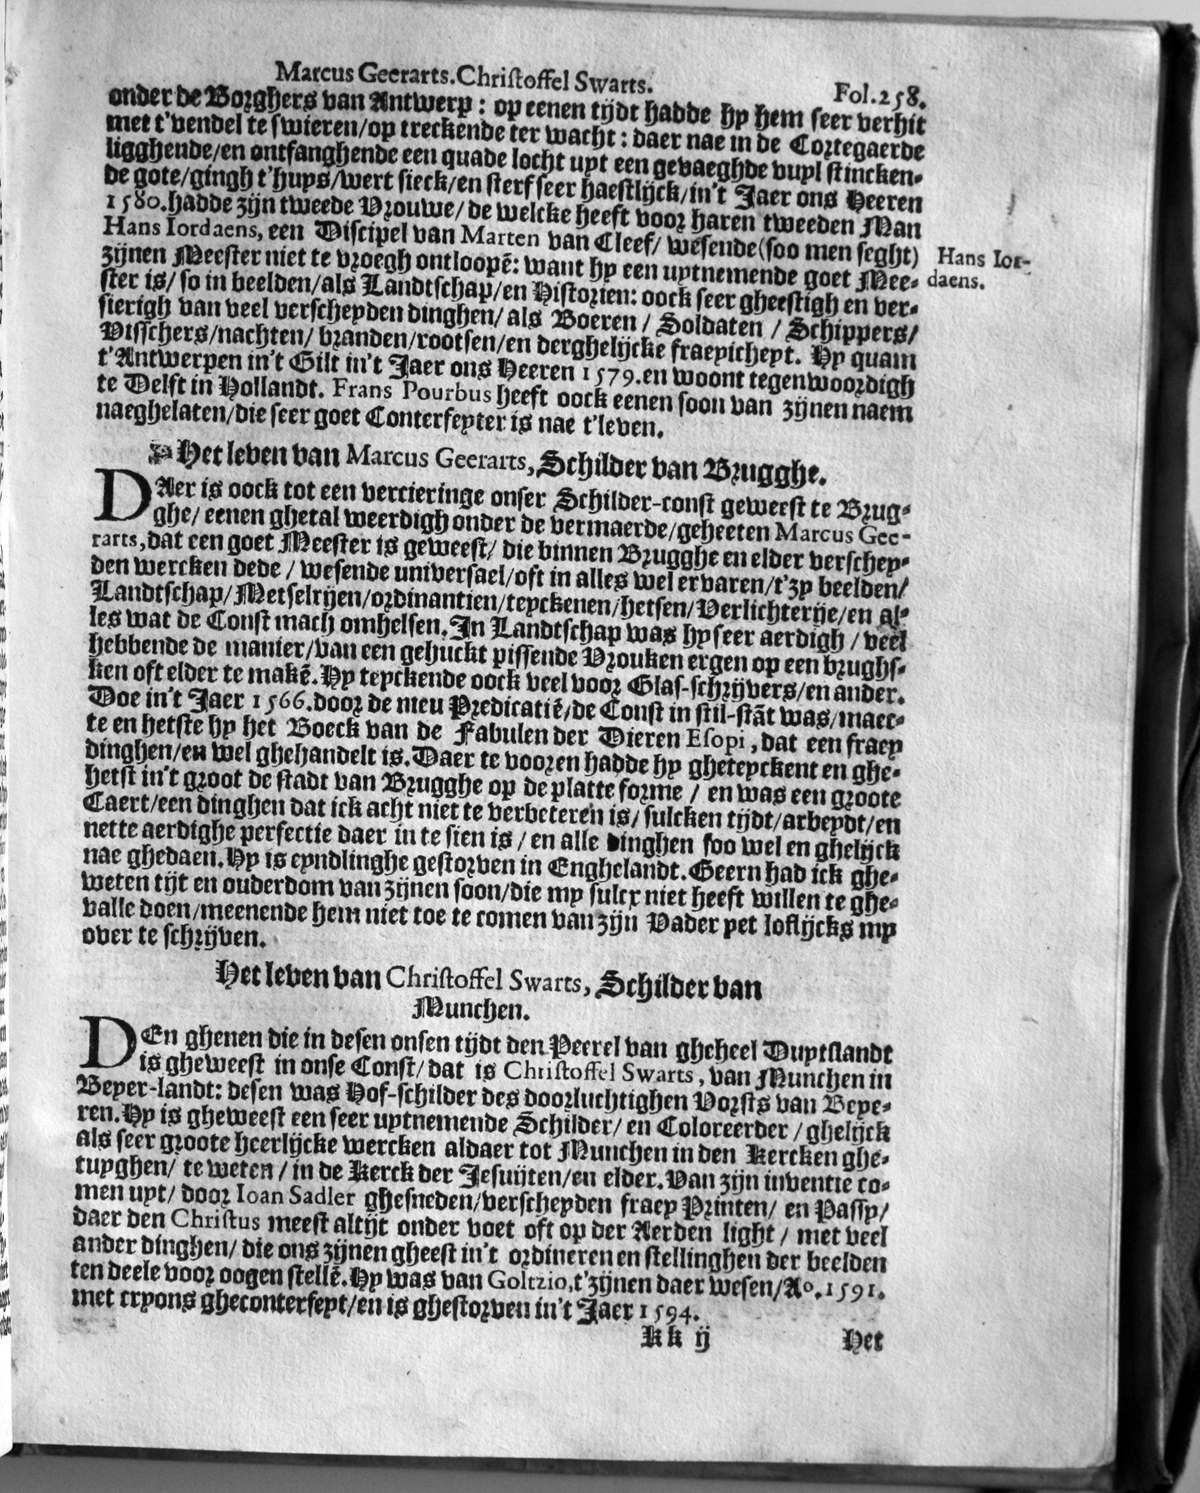 Marcus Geerarts. Christoffel Swarts.
Fol. 258.
onder de Borghers van Antwerp : op eenen tijdt hadde hy hem seer verhit
met t'vendel te swieren/ op treckende ter wacht : daer nae in de Cortegaerde
ligghende/ en ontfanghende een quade locht uyt een gevaeghde vuyl stincken-
de gote/ gingh t'huys/ wert sieck/ en sterf seer haestlijck/ in't Jaer ons Heeren
1580. hadde zijn tweede Vrouwe/ de welcke heeft voor haren tweeden Man
Hans Iordaens, een Discipel van Marten van Cleef/ wesende (soo men seght)
zijnen Meester niet te vroegh ontloopē: want hy een uytnemende goet Mee-
ster is/ so in beelden/ als Landtschap/ en Historien: oock seer gheestigh en ver-
sierigh van veel verscheyden dinghen/ als Boeren / Soldaten / Schippers/
Visschers/ nachten/ branden/ rootsen/ en derghelijcke fraeyicheyt. Hy quam
t'Antwerpen in't Gilt in't Jaer ons Heeren 1579. en woont tegenwoordigh
te Delft in Hollandt. Frans Pourbus heeft oock eenen soon van zijnen naem
naeghelaten/ die seer goet Conterfeyter is nae t'leven.
Hans Ior-
daens.
Het leven van Marcus Geerarts, Schilder van Brugghe.
DAer is oock tot een vercieringe onser Schilder-const geweest te Brug-
ghe/ eenen ghetal weerdigh onder de vermaerde/ geheeten Marcus Gee-
rarts, dat een goet Meester is geweest/ die binnen Brugghe en elder verschey-
den wercken dede / wesende universael/ oft in alles wel ervaren/ t'zy beelden/
Landtschap/ Metselrijen/ ordinantien/ teyckenen/ hetsen/ Verlichterije/ en al-
les wat de Const mach omhelsen. In Landtschap was hy seer aerdigh / veel
hebbende de manier/ van een gehuckt pissende Vrouken ergen op een brughs-
ken oft elder te makē. Hy teyckende oock veel voor Glas-schrijvers/ en ander.
Doe in't Jaer 1566. door de nieu Predicatiē/ de Const in stil-stāt was/ maec-
te en hetste hy het Boeck van de Fabulen der Dieren Esopi, dat een fraey
dinghen/ en wel ghehandelt is. Daer te vooren hadde hy gheteyckent en ghe-
hetst in't groot de stadt van Brugghe op de platte forme / en was een groote
Caert/ een dinghen dat ick acht niet te verbeteren is/ sulcken tijdt/ arbeydt/ en
nette aerdighe perfectie daer in te sien is / en alle dinghen soo wel en ghelijck
nae ghedaen. Hy is eyndlinghe gestorven in Enghelandt. Geern had ick ghe-
weten tijt en ouderdom van zijnen soon/ die my sulcx niet heeft willen te ghe-
valle doen/ meenende hem niet toe te comen van zijn Vader yet loflijcks my
over te schrijven.
Het leven van Christoffel Swarts, Schilder van
Munchen.
DEn ghenen die in desen onsen tijdt den Peerel van gheheel Duytslandt
is gheweest in onse Const/ dat is Christoffel Swarts, van Munchen in
Beyer-landt: desen was Hof-schilder des doorluchtighen Vorsts van Beye-
ren. Hy is gheweest een seer uytnemende Schilder/ en Coloreerder / ghelijck
als seer groote heerlijcke wercken aldaer tot Munchen in den Kercken ghe-
tuyghen/ te weten / in de Kerck der Jesuijten/ en elder. Van zijn inventie co-
men uyt/ door Ioan Sadler ghesneden/ verscheyden fraey Printen/ en Passy/
daer den Christus meest altijt onder voet oft op der Aerden light / met veel
ander dinghen/ die ons zijnen gheest in't ordineren en stellinghen der beelden
ten deele voor oogen stellē. Hy was van Goltzio, t'zijnen daer wesen/ Ao. 1591.
met cryons gheconterfeyt/ en is ghestorven in't Jaer 1594.
Kk ij
Het